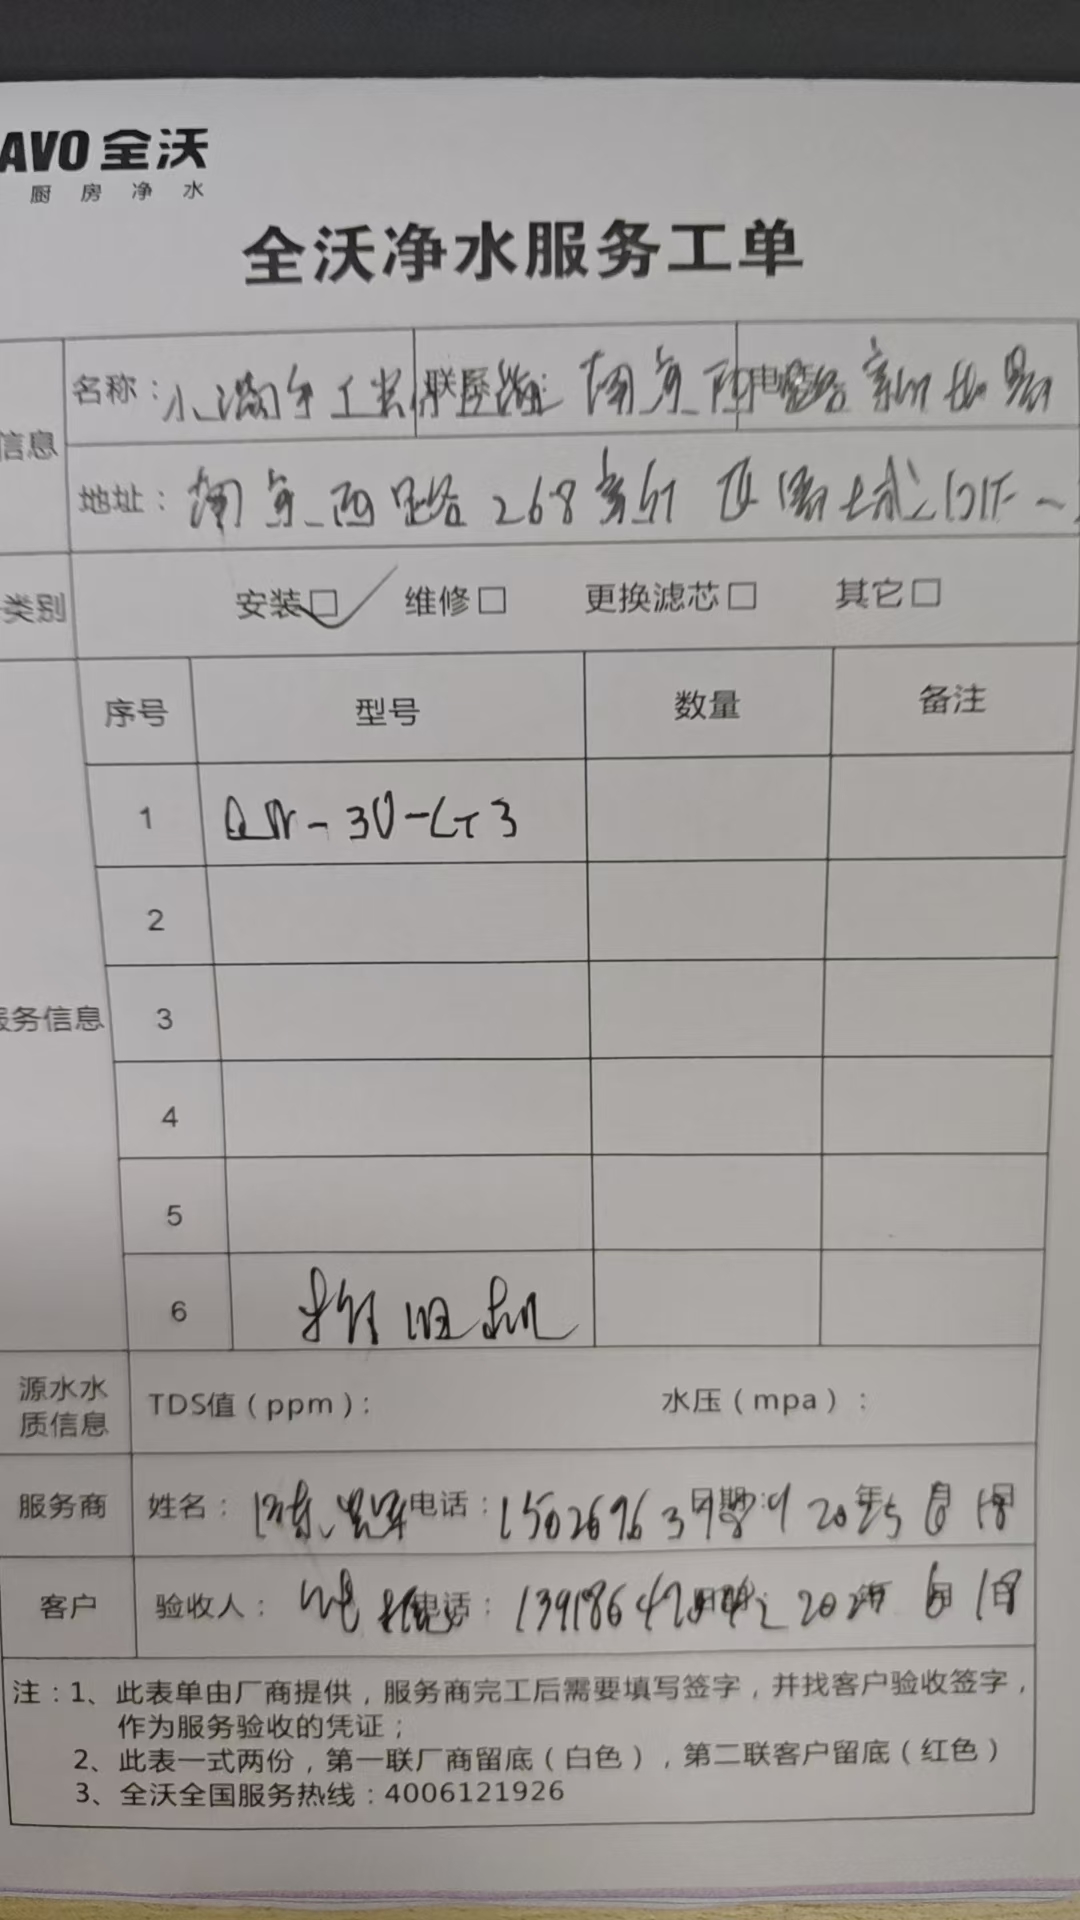 AVO 全沃
厨房净水
全沃净水服务工单
信息
名称：小满手工 联系 南京西路
地址：南京西路268
类别 安装☑ 维修□ 更换滤芯□ 其它□
序号 型号 数量 备注
1 QW-3U-LT3
2
服务信息 3
4
5
6 拆旧机
源水水质信息 TDS值（ppm）： 水压（mpa）：
服务商 姓名：陈 电话：150269639 日期： 2025年6月18日
客户 验收人： 电话：13918647 2025年6月18日
注：1、此表单由厂商提供，服务商完工后需要填写签字，并找客户验收签字，
作为服务验收的凭证；
2、此表一式两份，第一联厂商留底（白色），第二联客户留底（红色）
3、全沃全国服务热线：4006121926